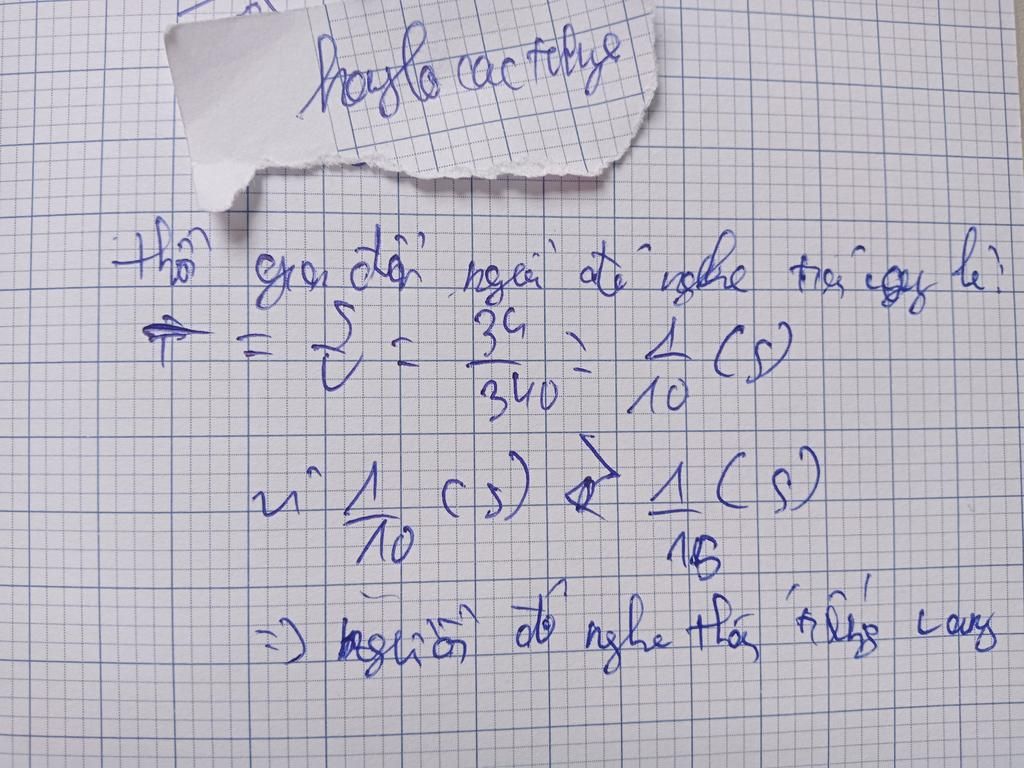 thời gian để người đó nghe tiếng vang là:
T = S/v = 34/340 = 1/10 (s)
vì 1/10 (s) > 1/15 (s)
=) người đó nghe thấy tiếng vang